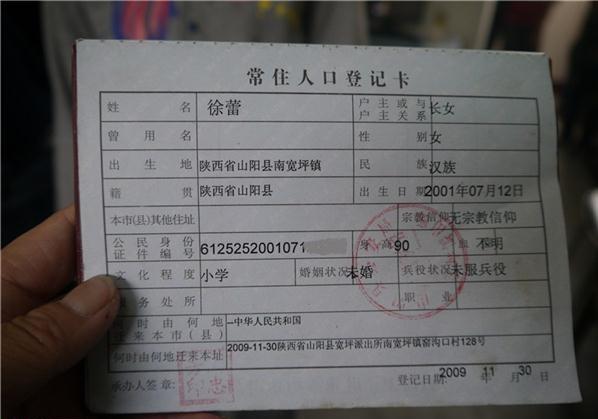 常住人口登记卡
姓名 徐蕾 户主或与户主关系 长女
曾用名 性别 女
出生地 陕西省山阳县南宽坪镇 民族 汉族
籍贯 陕西省山阳县 出生日期 2001年07月12日
本市(县)其他住址 宗教信仰 无宗教信仰
公民身份证件编号 6125252001071 身高 90 血 不明
文化程度 小学 婚姻状况 未婚 兵役状况 未服兵役
服务处所 职业
何时由何地迁来本市(县) --中华人民共和国
何时由何地迁来本址 2009-11-30陕西省山阳县宽坪派出所南宽坪镇窑沟口村128号
承办人签章: 登记日期: 2009年11月30日